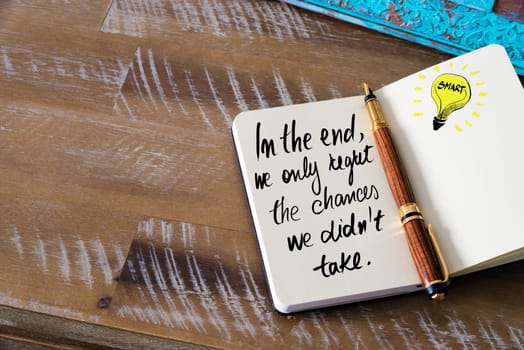 In the end,
we only regret
the chances
we didn't
take.
SMART